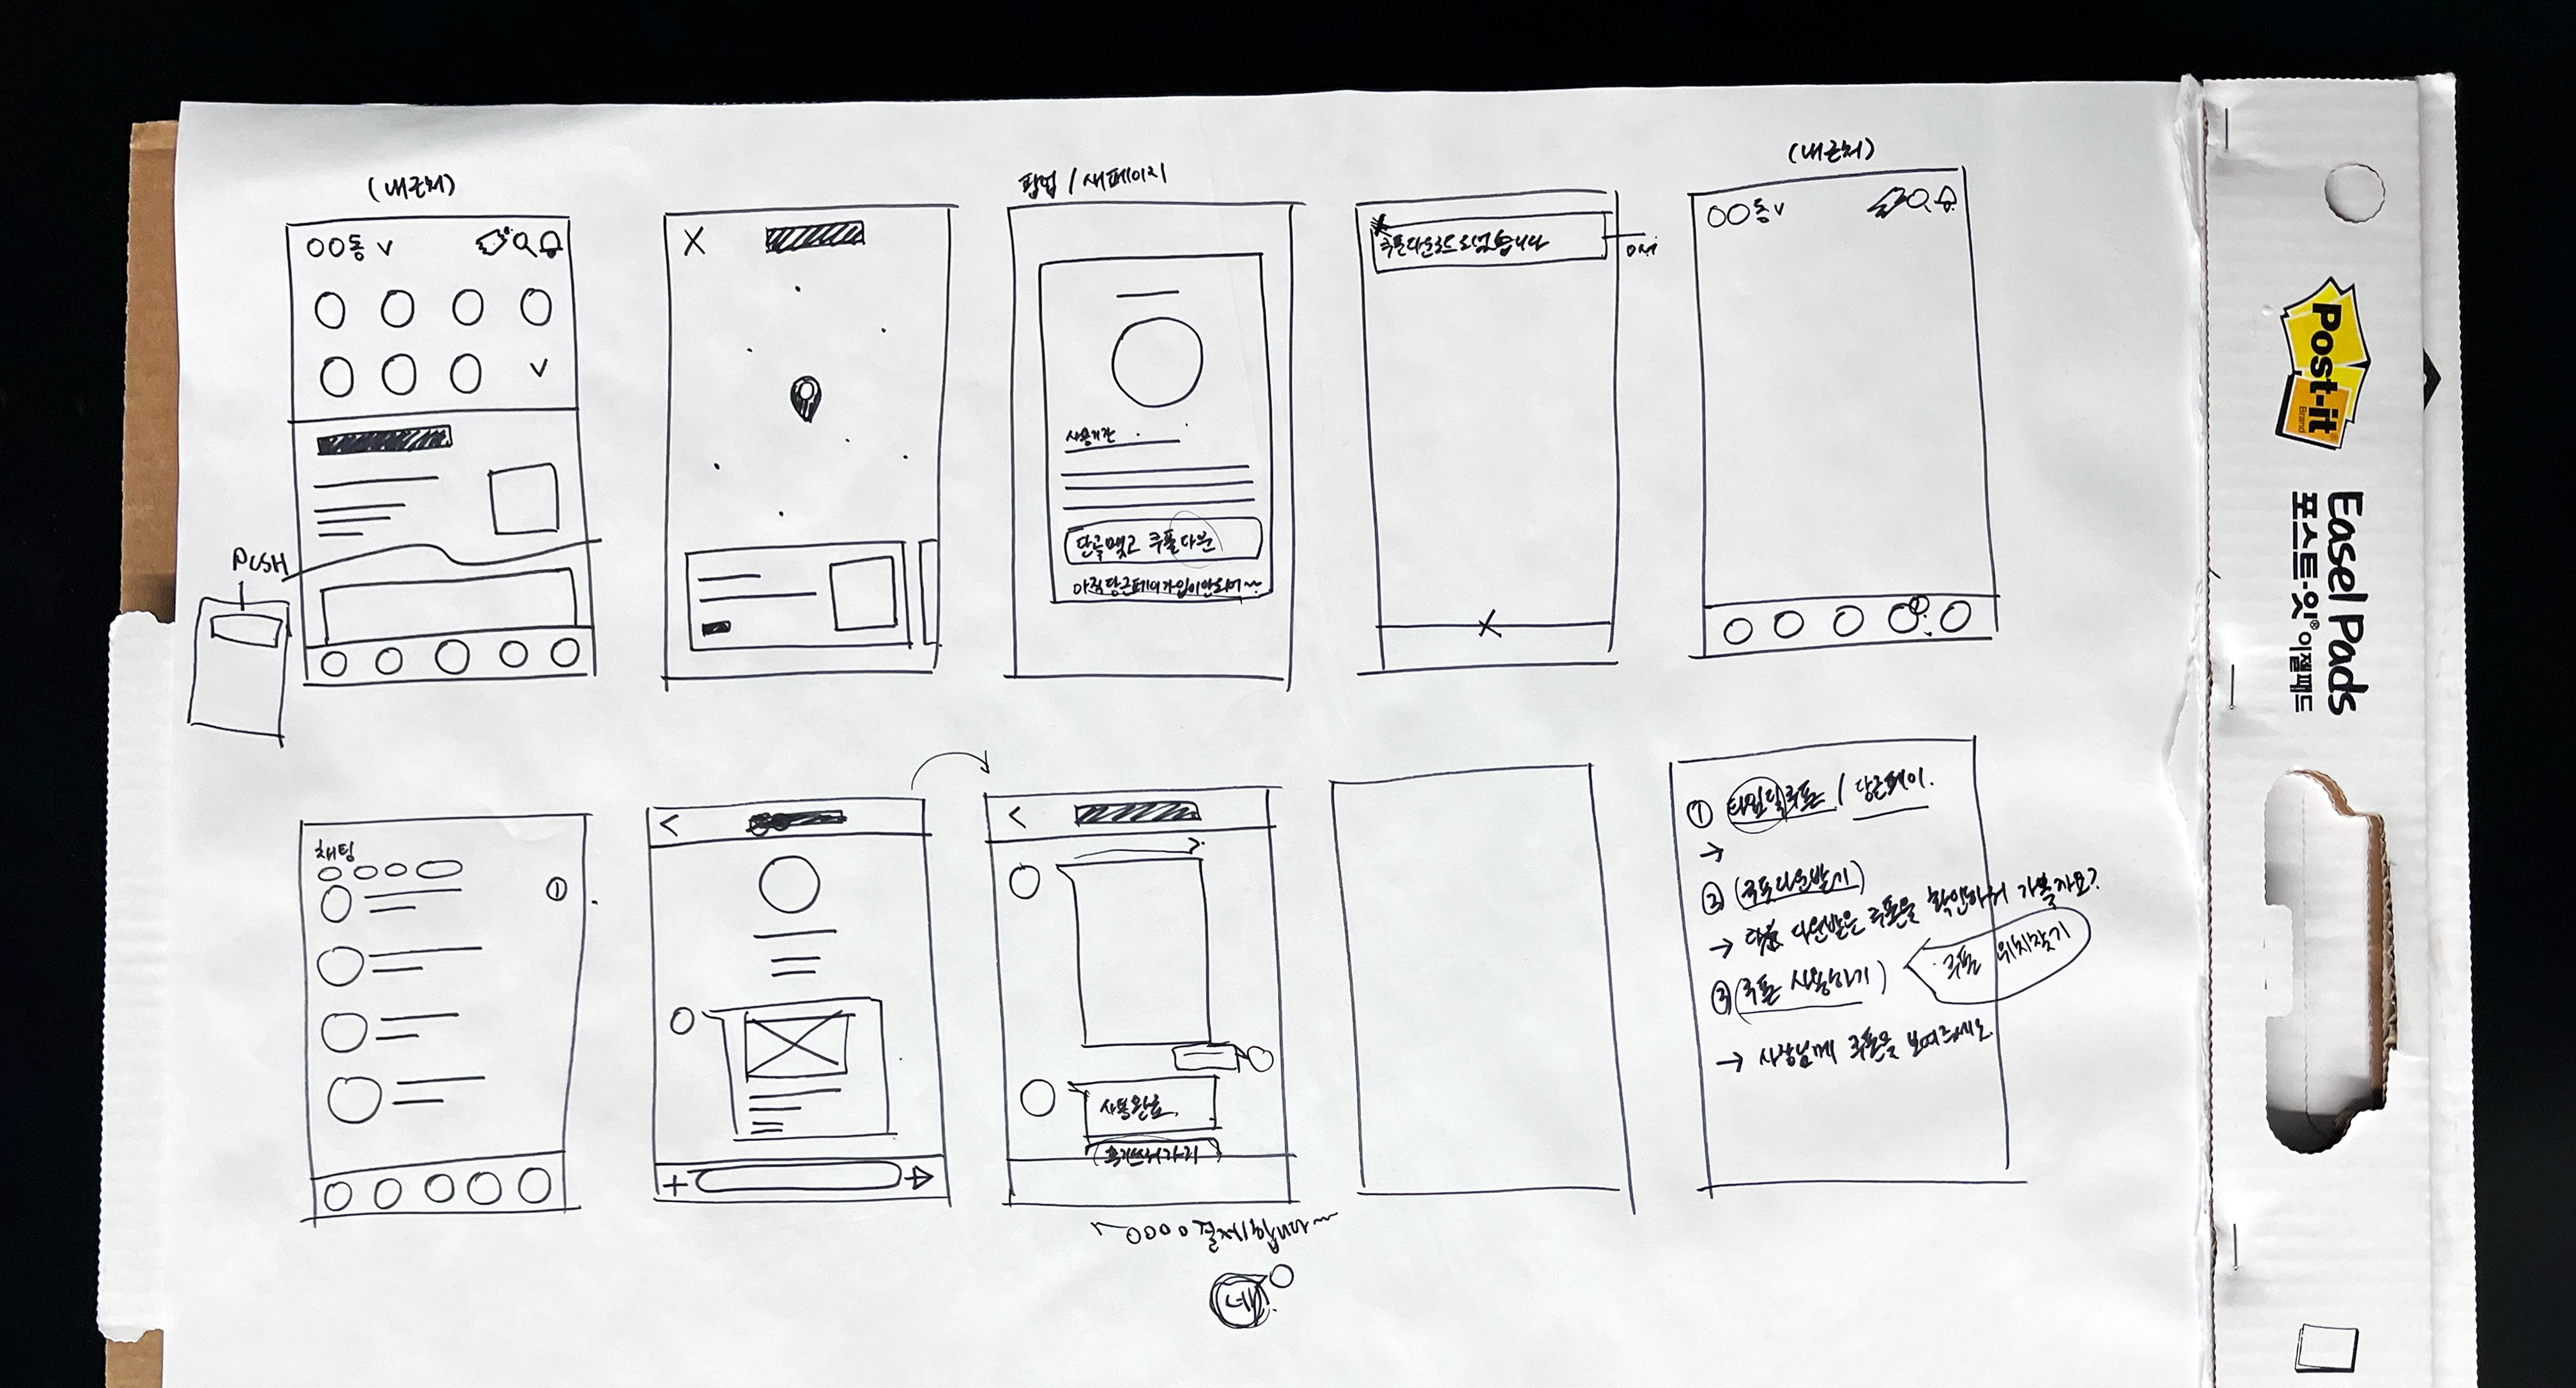 (내근처)
OO동 v
PUSH
팝업 / 새페이지
사용기간
단골맺고 쿠폰다운
아직 당근페이 가입이 안되어~
쿠폰다운로드 되었습니다
(내근처)
OO동 v
채팅
①
사용완료
후기쓰러가기
OOOO 결제합니다~
네
① 타임딜쿠폰 / 당근페이.
→
② (쿠폰다운받기)
→ 다운받은 쿠폰을 확인하러 가볼까요?
③ (쿠폰 사용하기)
쿠폰 위치찾기
→ 사장님께 쿠폰을 보여주세요.
Post-it
Brand
Easel Pads
포스트-잇® 이젤패드